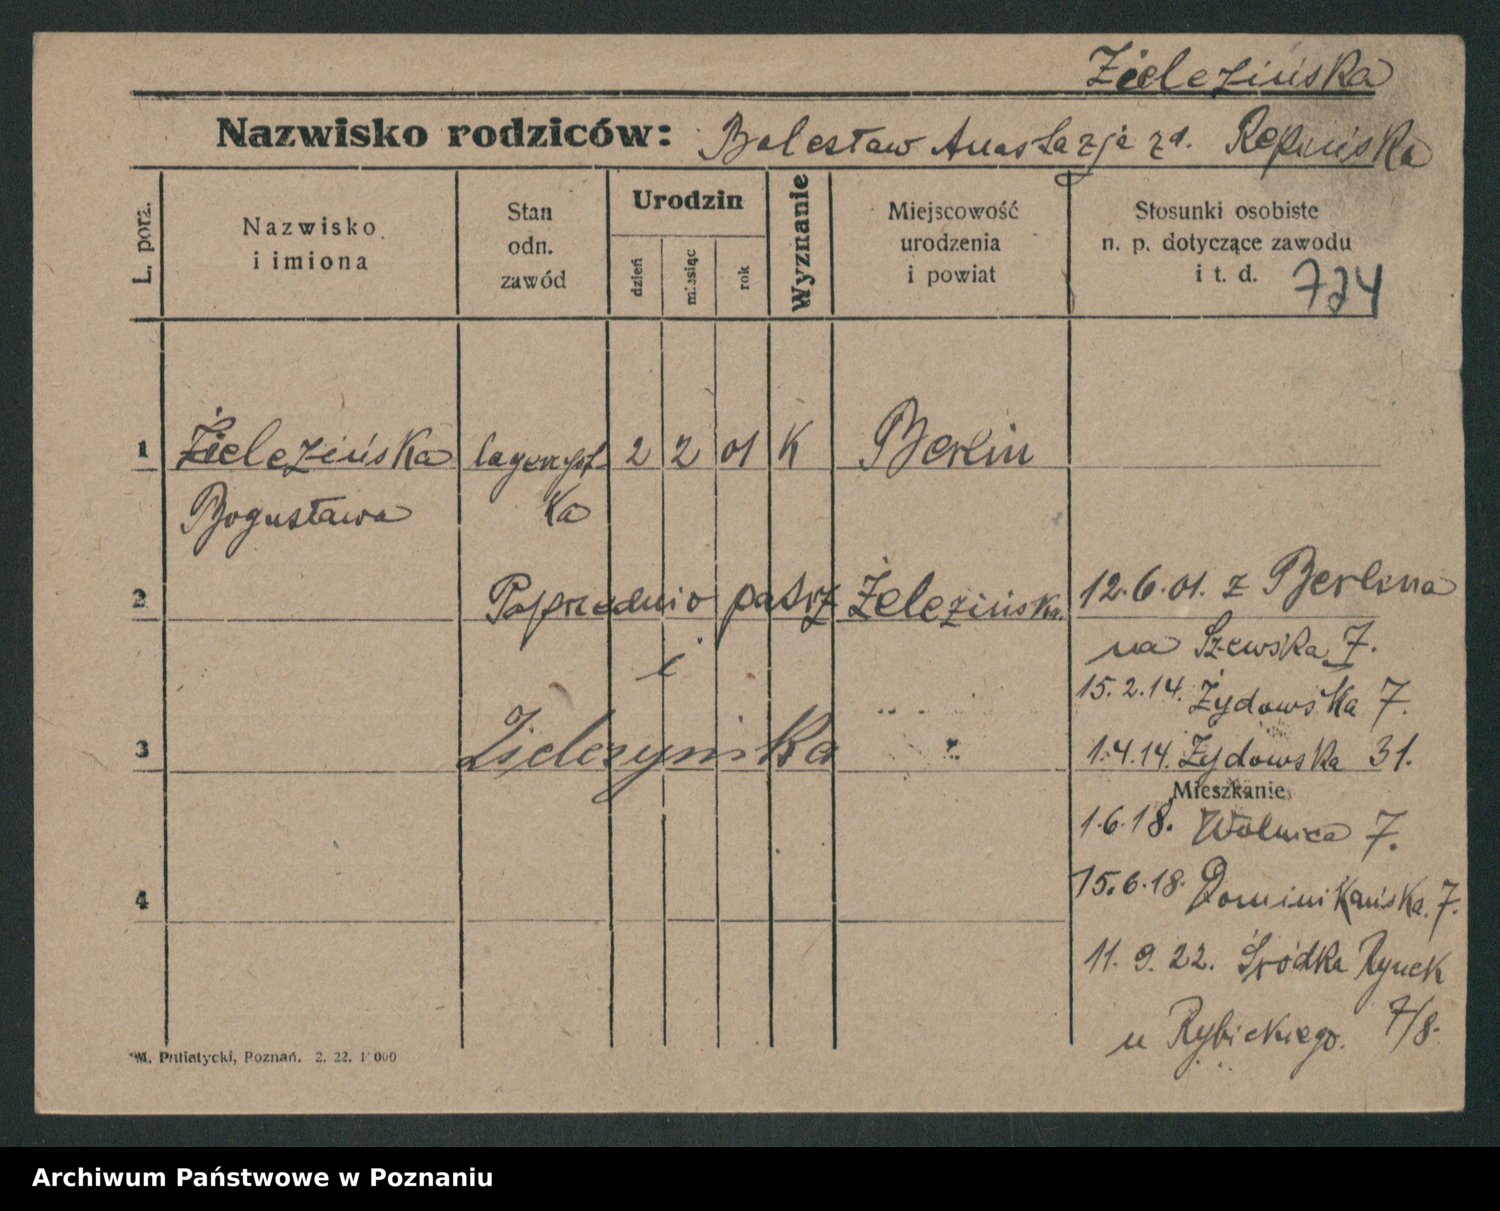 Zielezińska
Nazwisko rodziców: Bolesław Anastazja zd.
L. porz.
Nazwisko
i imiona
Stan
odn.
zawód
Urodzin
dzień
miesiąc
rok
Wyznanie
Miejscowość
urodzenia
i powiat
Stosunki osobiste
n. p. dotyczące zawodu
i t. d. 724
1 Zielezińska 2 2 01 K Berlin
Bogusława ka
2 Poprzednio patrz Żelezińska 12.6.01. z Berlina
i na Szewska 7.
15.2.14. Żydowska 7.
3 Zielezynska " 1.4.14. Żydowska 31.
Mieszkanie
1.6.18. Wolnica 7.
4 15.6.18. Dominikańska 7.
11.9.22. Śródka Rynek
7/8.
u Rybickiego.
M. Putiatycki, Poznań. 2. 22. 1 000
Archiwum Państwowe w Poznaniu